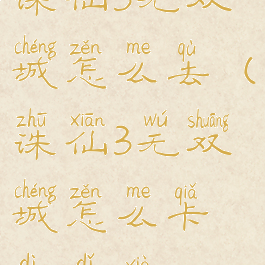 诛仙3无双
chéng zěn me qù
城怎么去（
zhū xiān wú shuāng
诛仙3无双
chéng zěn me qiǎ
城怎么卡
dì dǐ xià